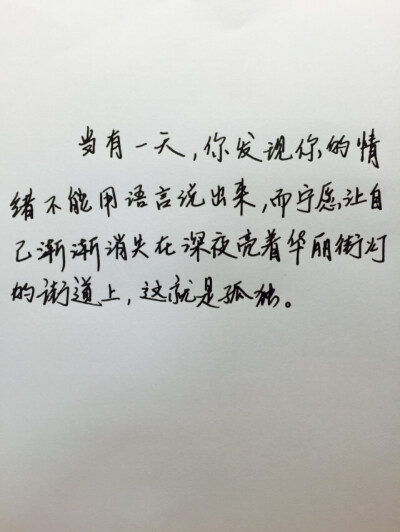 当有一天,你发现你的情
绪不能用语言说出来,而宁愿让自
己渐渐消失在深夜亮着华丽街灯
的街道上,这就是孤独。